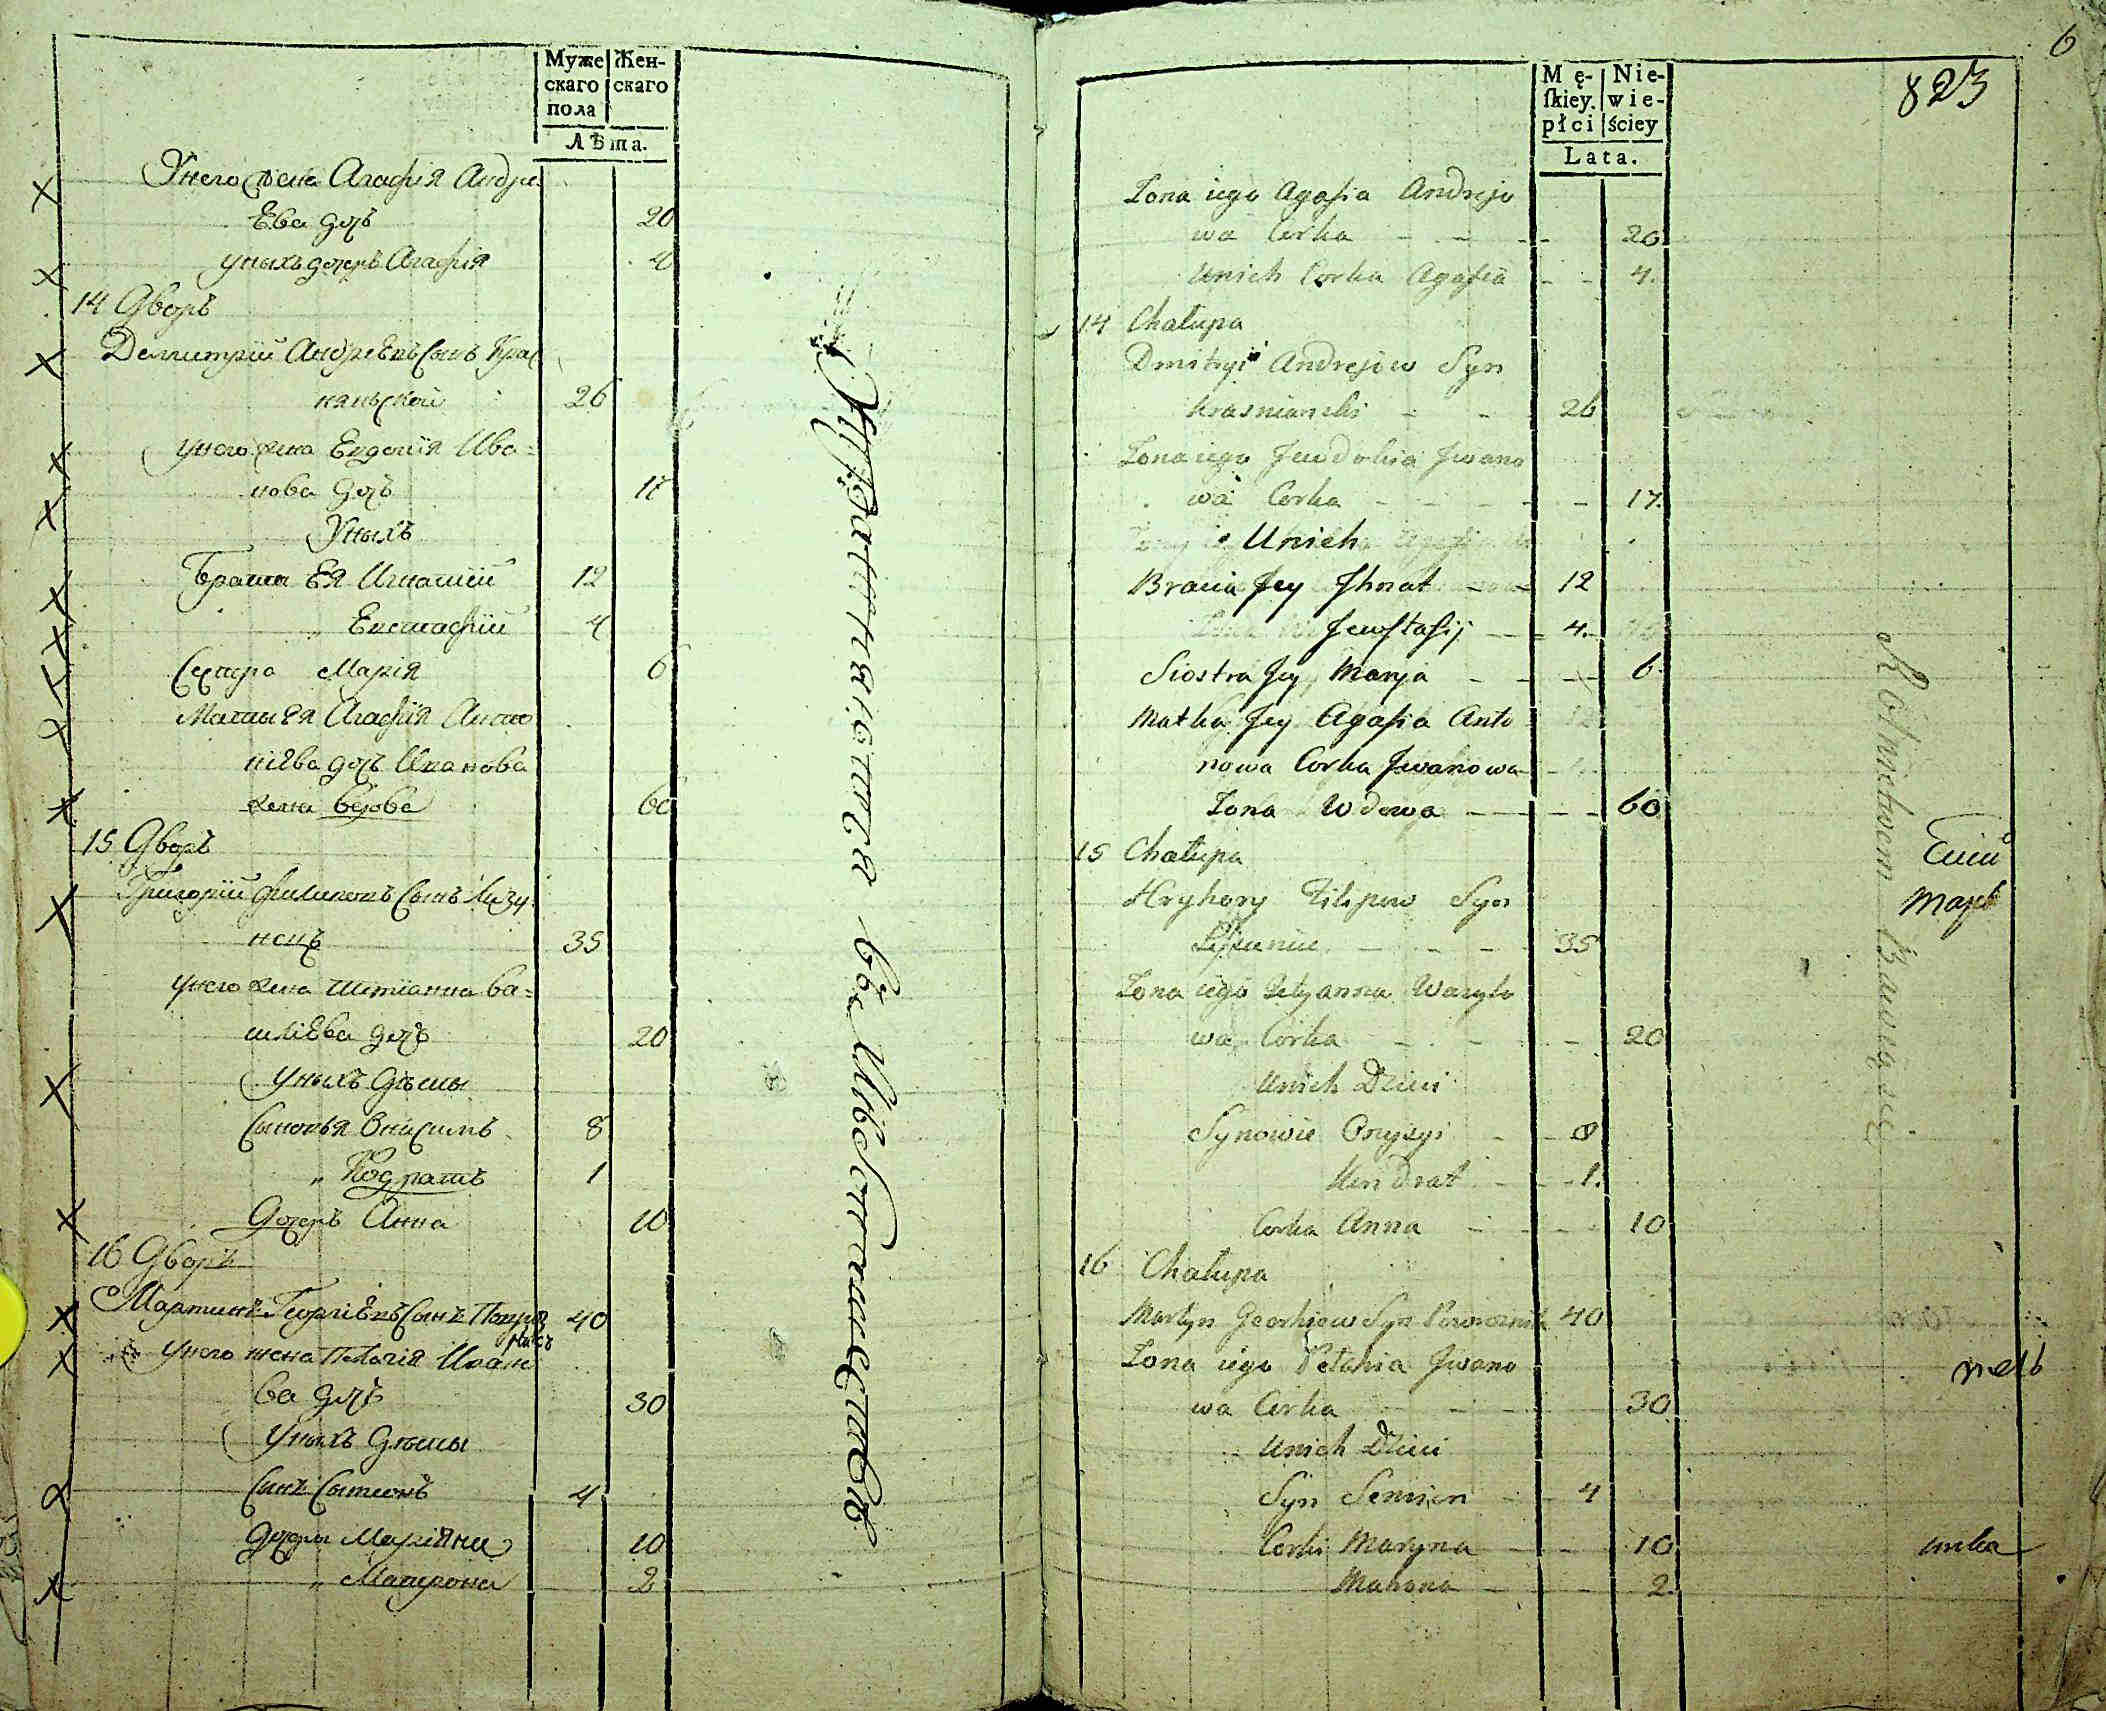 Муже
скаго
пола
Жен-
скаго
Лѣта.
Унего жена Агафія Андре
Ева дочь 20
уныхъ дочерь Агафія 4
14 Дворъ
Демитрій Андреевъ Сынъ Крас
няньской 26
унего жена Евдокія Ива=
нова дочь 17
Уныхъ
Братья Ея Игнатій 12
„ Евстафій 4
Сестра Марія 6
Мать Ея Агафія Анто
ніева дочь Иванова
жена вдова 60
15 Дворъ
Григорій Филиповъ Сынъ
35
унего жена Татіанна Ва=
силіева дочь 20
уныхъ Дѣты
Сыновья Онисимъ 8
„ Кодратъ 1
Дочерь Анна 10
16 Дворъ
Мартинъ Георгіевъ Сынъ 40
унего жена Пелагія Ивано
ва дочь 30
уныхъ Дѣты
Сынъ Сымеонъ 4
Дочери Маріяна 10
„ Матрона 2
въ
6
823
Mę-
ſkiey.
płci
Nie-
wie-
ściey
Lata.
Zona iego Agafia Andrejo
wa Corka - - - 20
Unich Corka Agafia - - 4.
14 Chałupa
Dmitryi Andrejow Syn
Krasnianski - - 26
Zona iego Jewdokia Jwano
wa Corka - - - - 17.
Unich
Bracia Jey Jhnat - - 12
Jewstafij - - 4.
Siostra Jey Marya - - - 6.
Matka Jey Agafia Anto
nowa Corka Jwanowa
Zona Wdowa - - - - 60
15 Chałupa
Hryhory Filipow Syn
- - - 35
Zona iego Tetyanna Wasylo
wa Corka - - - 20
Unich Dzieci
Synowie Onyzyi - - 8
Kindrat - - 1.
Corka Anna - - - 10
16 Chałupa
Martyn Georhiew Syn Powroznik 40
Zona iego Pelahia Jwano
wa Corka - - - 30
Unich Dzieci
Syn Semion - - 4
Corki Maryna - - - 10
Matrona - - - 2.